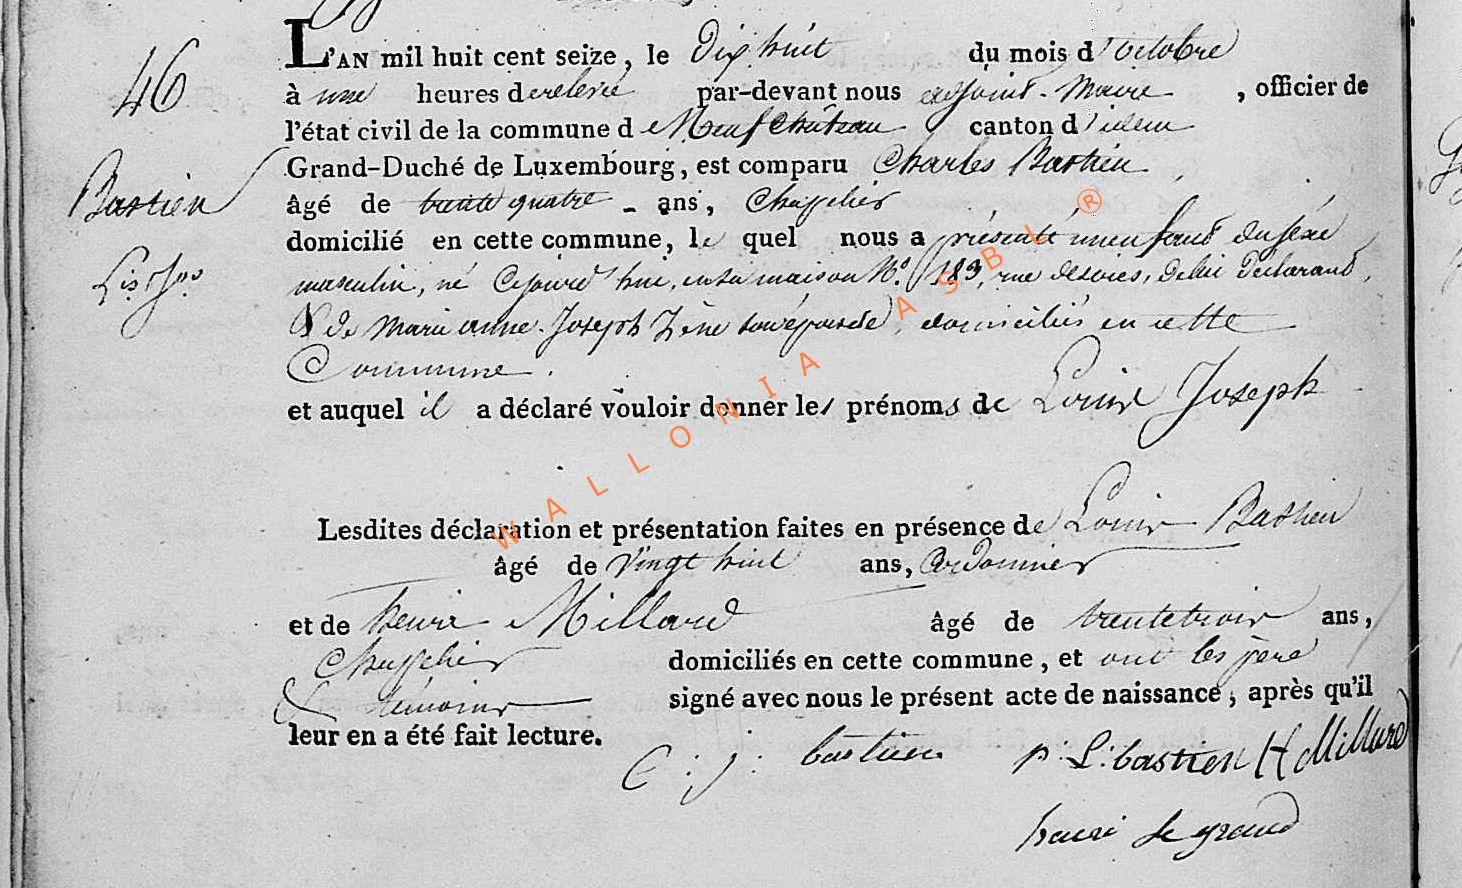 46
L'AN mil huit cent seize, le Dix huit du mois d'octobre
à une heures de relevée par-devant nous adjoint-Maire, officier de
l'état civil de la commune de Neufchâteau canton d'idem
Grand-Duché de Luxembourg, est comparu Charles Bastien
Bastien
âgé de trente quatre - ans, Chapelier
domicilié en cette commune, le quel nous a présenté un enfant du sexe
masculin, né Cejourd'hui, en sa maison N.º 183, rue de, de lui Déclarant,
& de Marie anne Joseph son épouse, domiciliés en cette
Commune.
et auquel il a déclaré vouloir donner les prénoms de Louis Joseph
Lesdites déclaration et présentation faites en présence de Louis Bastien
âgé de Vingt huit ans, Cordonnier
et de henri Millard âgé de trente trois ans,
Chapelier domiciliés en cette commune, et ont les père
& témoins signé avec nous le présent acte de naissance, après qu'il
leur en a été fait lecture.
C: j: bastien p: L: bastien H Millard
henri le grand
WALLONIA ASBL ®